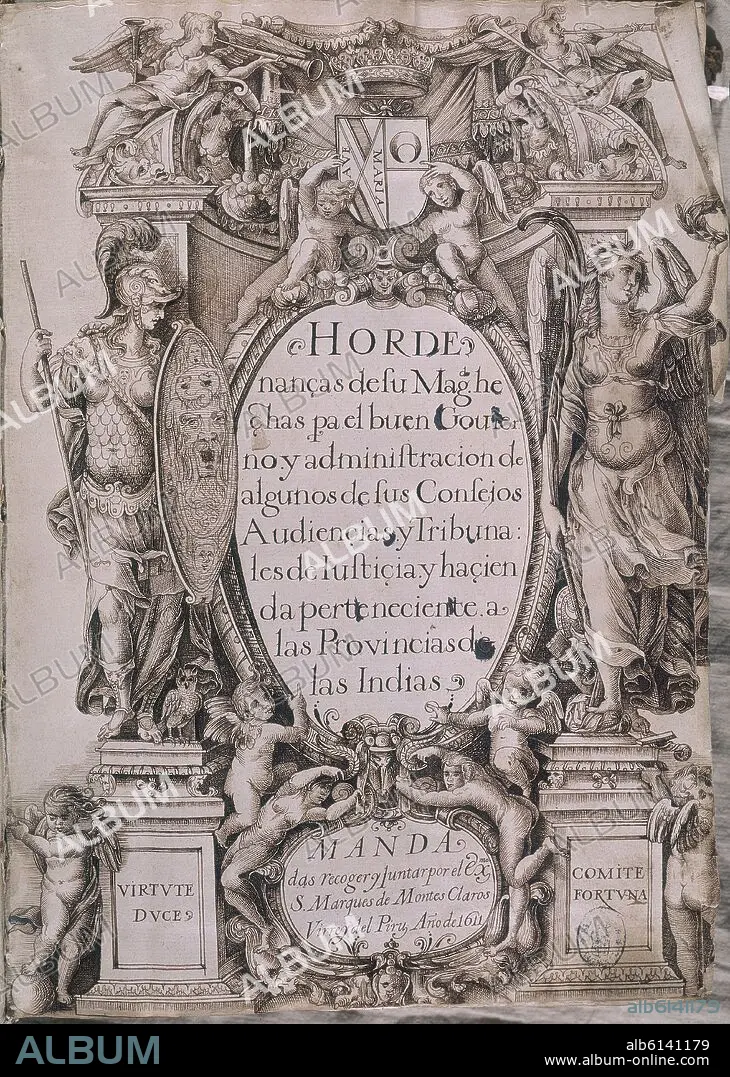 AVE
MARIA
HORDE
nanças de su Mag. he
chas pa el buen Gouier
no y administracion de
algunos de sus Consejos
Audiencias y Tribuna:
les de Iustiçia y haçien
da perteneciente a
las Provincias de
las Indias
MANDA
das recoger y Juntar por el exmo
S. Marques de Montes Claros
Virrey del Piru, Año de 1611
VIRTVTE
DVCE
COMITE
FORTVNA
ALBUM
alb6141179
ALBUM
alb6141179
www.album-online.com